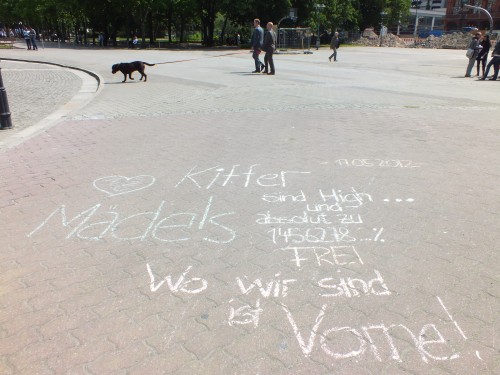 17.05.2012
♡ Kiffer
Mädels
sind High ...
und
absolut zu
1456278...%
FREI
Wo wir sind
ist Vorne!